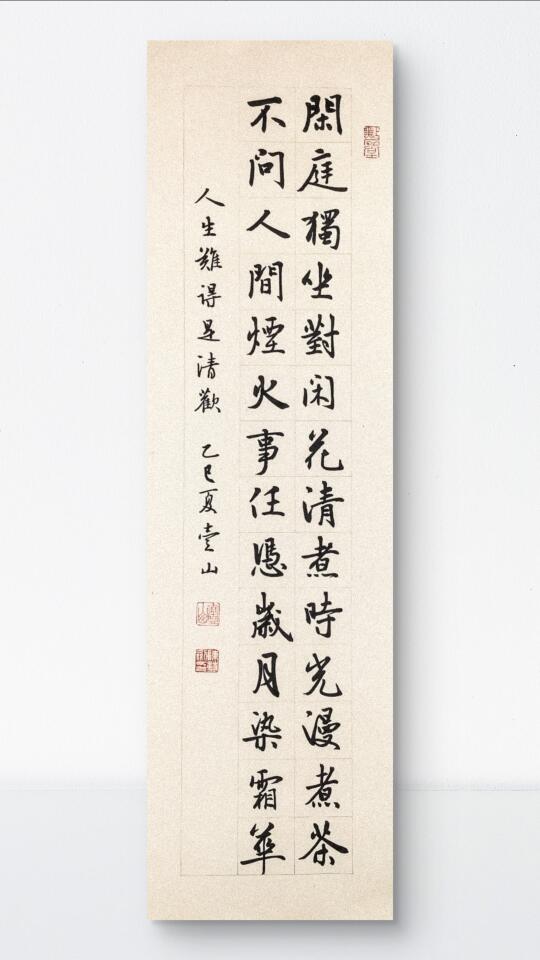 閑庭獨坐對闲花清煮時光漫煮茶
不问人間煙火事任憑歲月染霜華
人生難得是清歡 乙巳夏壹山